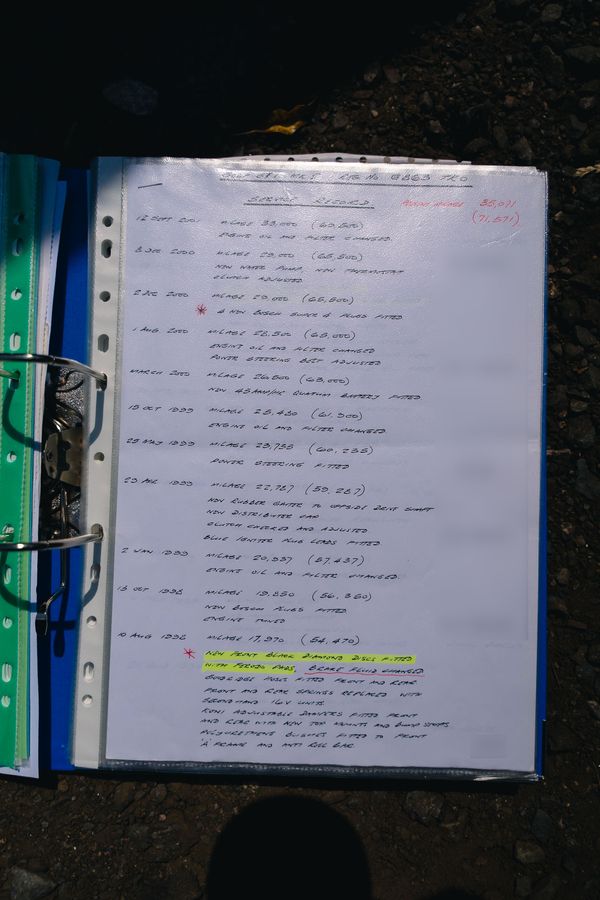 GOLF GTI MK II : REG No G863 TKO
SERVICE RECORD
35,071
(71,571)
12 SEPT 2001 MILAGE 33,000 (69,500)
ENGINE OIL AND FILTER CHANGED.
3 DEC 2000 MILAGE 29,000 (65,500)
NEW WATER PUMP, NEW THERMOSTAT
CLUTCH ADJUSTED
2 DEC 2000 MILAGE 29,000 (65,500)
* 4 NEW BOSCH SUPER 4 PLUGS FITTED
1 AUG 2000 MILAGE 28,500 (65,000)
ENGINE OIL AND FILTER CHANGED
POWER STEERING BELT ADJUSTED
MARCH 2000 MILAGE 26,500 (63,000)
NEW 43AMP/HR QUANTUM BATTERY FITTED
15 OCT 1999 MILAGE 25,450 (61,900)
ENGINE OIL AND FILTER CHANGED.
29 MAY 1999 MILAGE 23,735 (60,235)
POWER STEERING FITTED
29 APR 1999 MILAGE 22,787 (59,287)
NEW RUBBER GAITER TO OFFSIDE DRIVE SHAFT
NEW DISTRIBUTER CAP
CLUTCH CHECKED AND ADJUSTED
BLUE IGNITER PLUG LEADS FITTED
2 JAN 1999 MILAGE 20,937 (57,437)
ENGINE OIL AND FILTER CHANGED.
15 OCT 1998 MILAGE 19,850 (56,350)
NEW BOSCH PLUGS FITTED
ENGINE TUNED
10 AUG 1998 MILAGE 17,970 (54,470)
* NEW FRONT BLACK DIAMOND DISCS FITTED
WITH FERODO PADS, BRAKE FLUID CHANGED
GOODRIDGE HOSE FITTED FRONT AND REAR
FRONT AND REAR SPRINGS REPLACED WITH
SECONDHAND 16V UNITS
KONI ADJUSTABLE DAMPERS FITTED FRONT
AND REAR WITH NEW TOP MOUNTS AND BUMP STOPS
POLYURETHENE BUSHES FITTED TO FRONT
'A' FRAME AND ANTI ROLL BAR